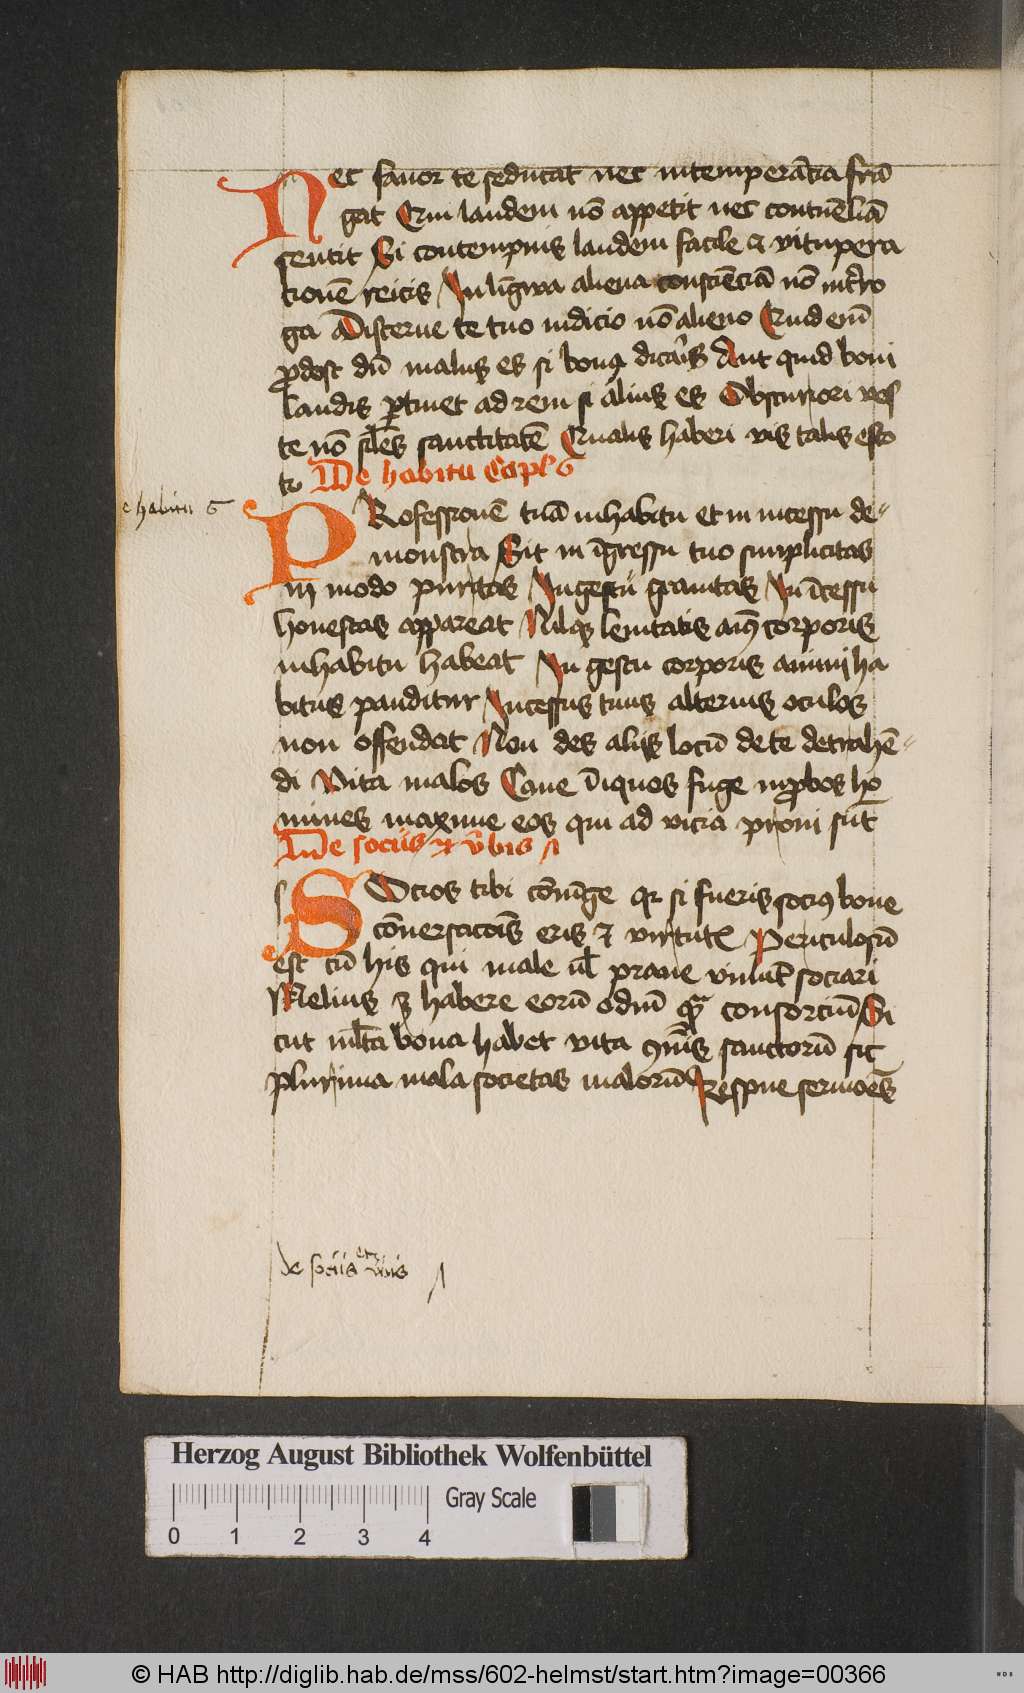 Nec favor te seducat nec intemperācia frā
gat Qui laudem nō appetit nec contuēliā
sentit Si contempnis laudem facile et vitupera
cionē reicis In līgwa aliena consciēciā nō int̄ro
ga Discerne te tuo iudicio nō alieno Quid eni̅
ꝓdest du̅ malus es si bonꝰ dicar̄is Aut quid boni
laudis ꝑtinet ad rem si alius es Obscuriori ves
te nō
sanctitatē Qualis haberi vis talis esto
tc̄ De habitu Capl' 6
e habitu 6
PRofessionē tuā in habitu et in incessu de⸗
monstra Sit in īgressu tuo simplicitas
in modo puritas In gestu gravitas In īcessu
honestas appareat Nilqꝫ lenitatis
corporis
in habitu habeat In gestu corporis animi ha
bitus panditur Incessus tuus alterius oculos
non offendat Non des alijs locū de te detrahē⸗
di Vita malos Cave īiquos fuge inꝓbos ho
mines maxime eos qui ad vicia proni sūt
De sociis et v̄bis 7
SOcios tibi cōiūge qr si fueris sociꝰ bone
cōversacōis eris et virtutꝭ Periculosū
est cū his qui male vl̄ prave viuūt sociari
Melius ꝫ habere eorū odiū qꝫ̄ consorciū Si
cut ml̄ta bona habet vita ꝯmūis sanctorū sic
plurima mala societas malorū Respue sermōes
de sociis etc viris 7
Herzog August Bibliothek Wolfenbüttel
Gray Scale
0 1 2 3 4
© HAB http://diglib.hab.de/mss/602-helmst/start.htm?image=00366